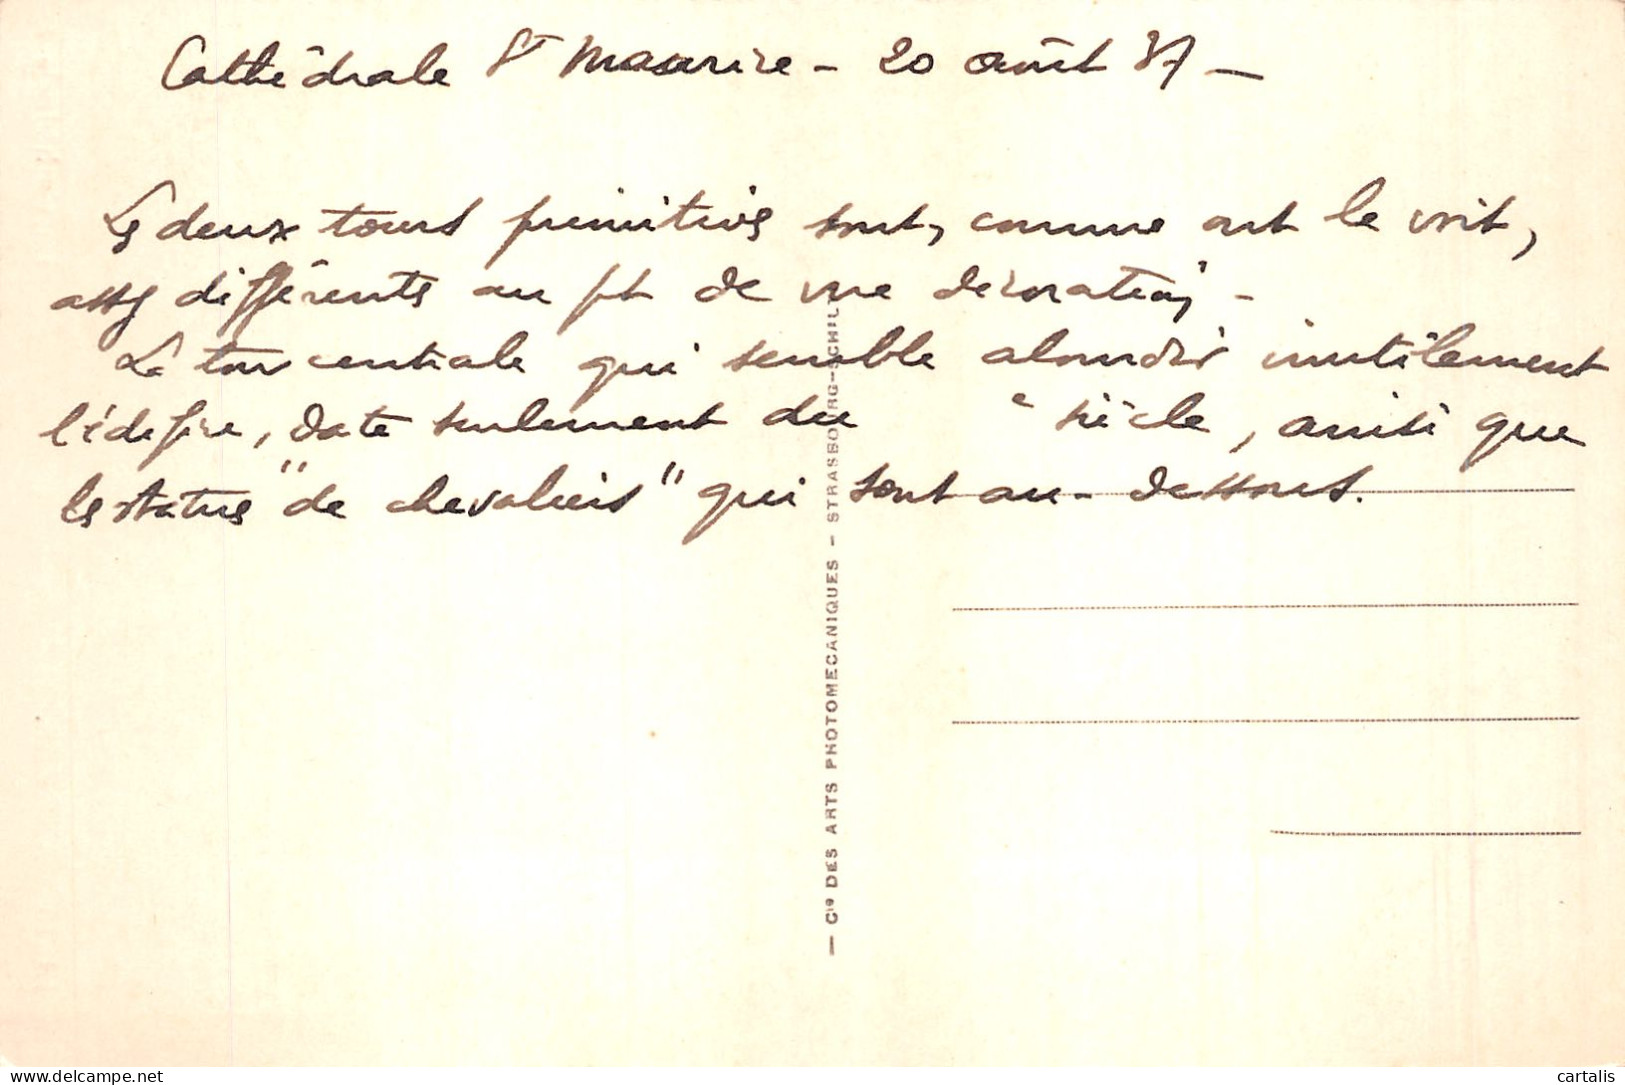 Cathédrale St Maurice - 20 août 37 -
Les deux tours primitives sont, comme on le voit,
assez différentes au pt de vue décoration -
La tour centrale qui semble alourdir inutilement
l'édifice, date seulement du e siècle, ainsi que
les statues "de chevaliers" qui sont au-dessous.
— Cie DES ARTS PHOTOMECANIQUES — STRASBOURG-SCHILT
delcampe.net
cartalis